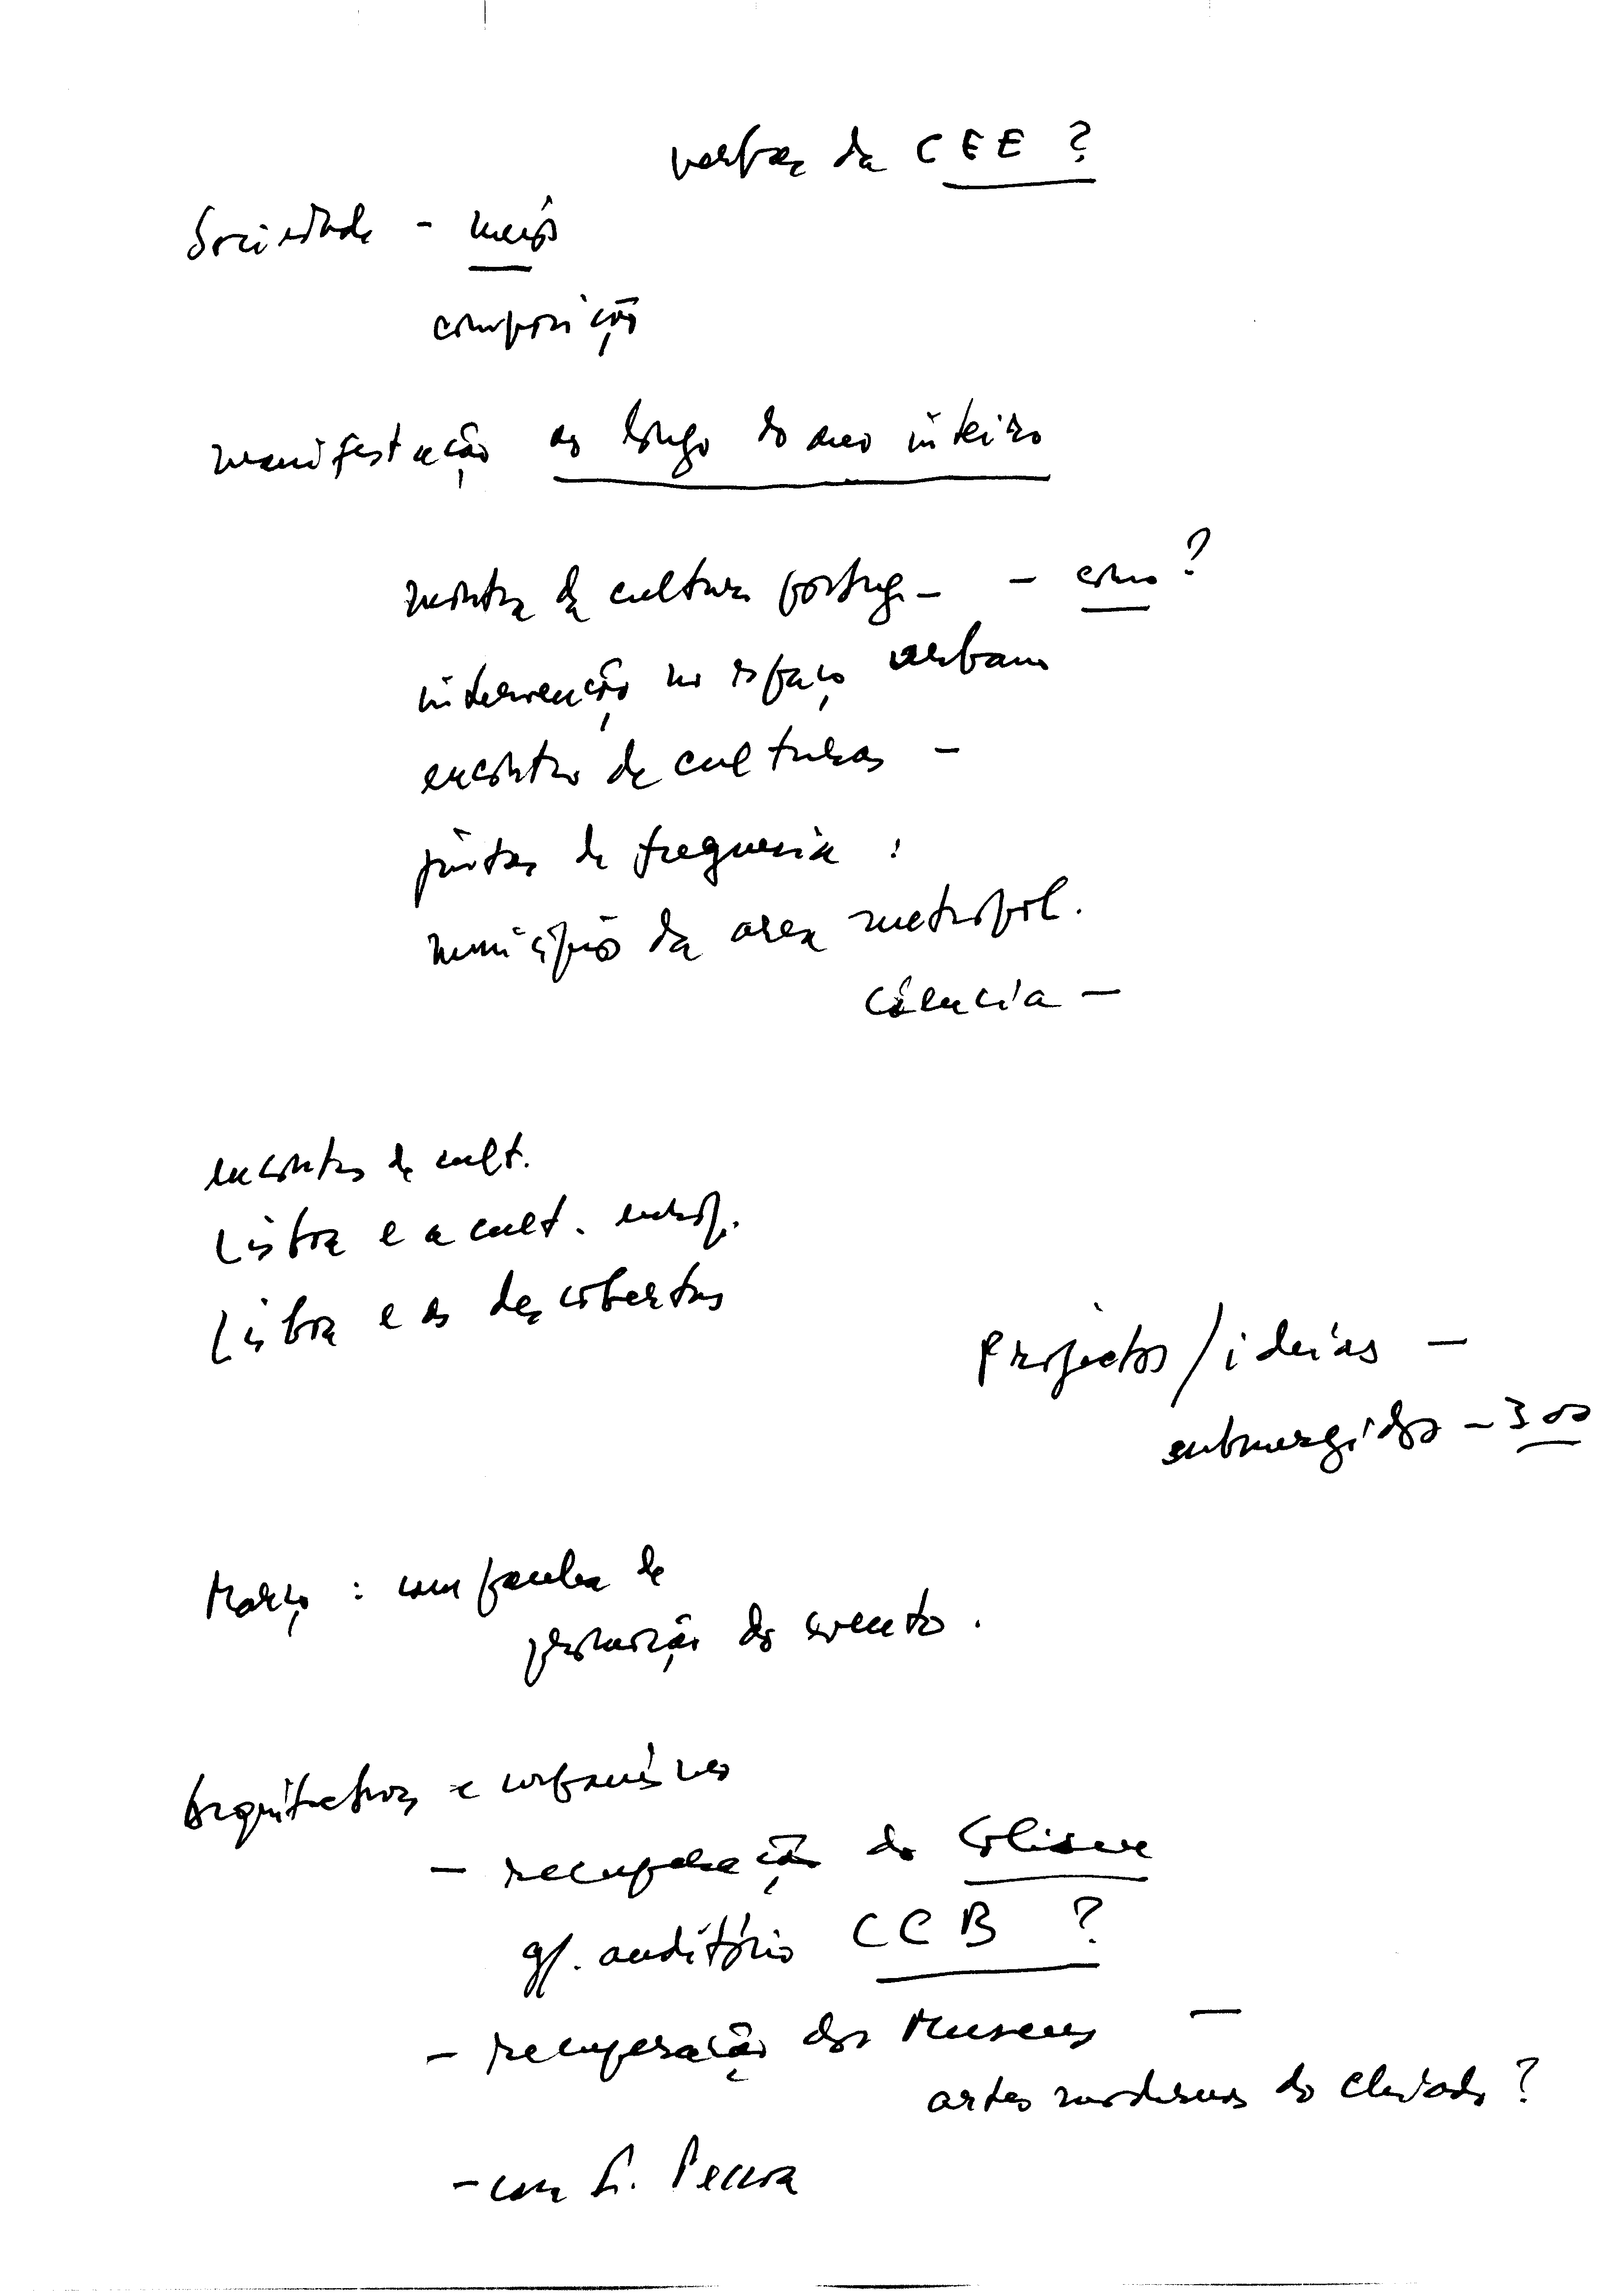 verbas da CEE ?
Sociedade - meios
composição
manifestação ao longo do ano inteiro
montra da cultura portug. - como ?
intervenção no espaço urbano
encontro de culturas -
juntas de freguesia :
municípios da area metropol.
ciência -
encontro de cult.
Lisboa e a cult. europ.
Lisboa e as descobertas
Projectos / ideias -
submergidos - 300
Março : campanha de
promoção do evento .
Arquitectura e urbanismo
- recuperação do Coliseu
gr. auditório CCB ?
- recuperação dos Museus -
artes modernas do Chiado ?
- casa F. Pessoa